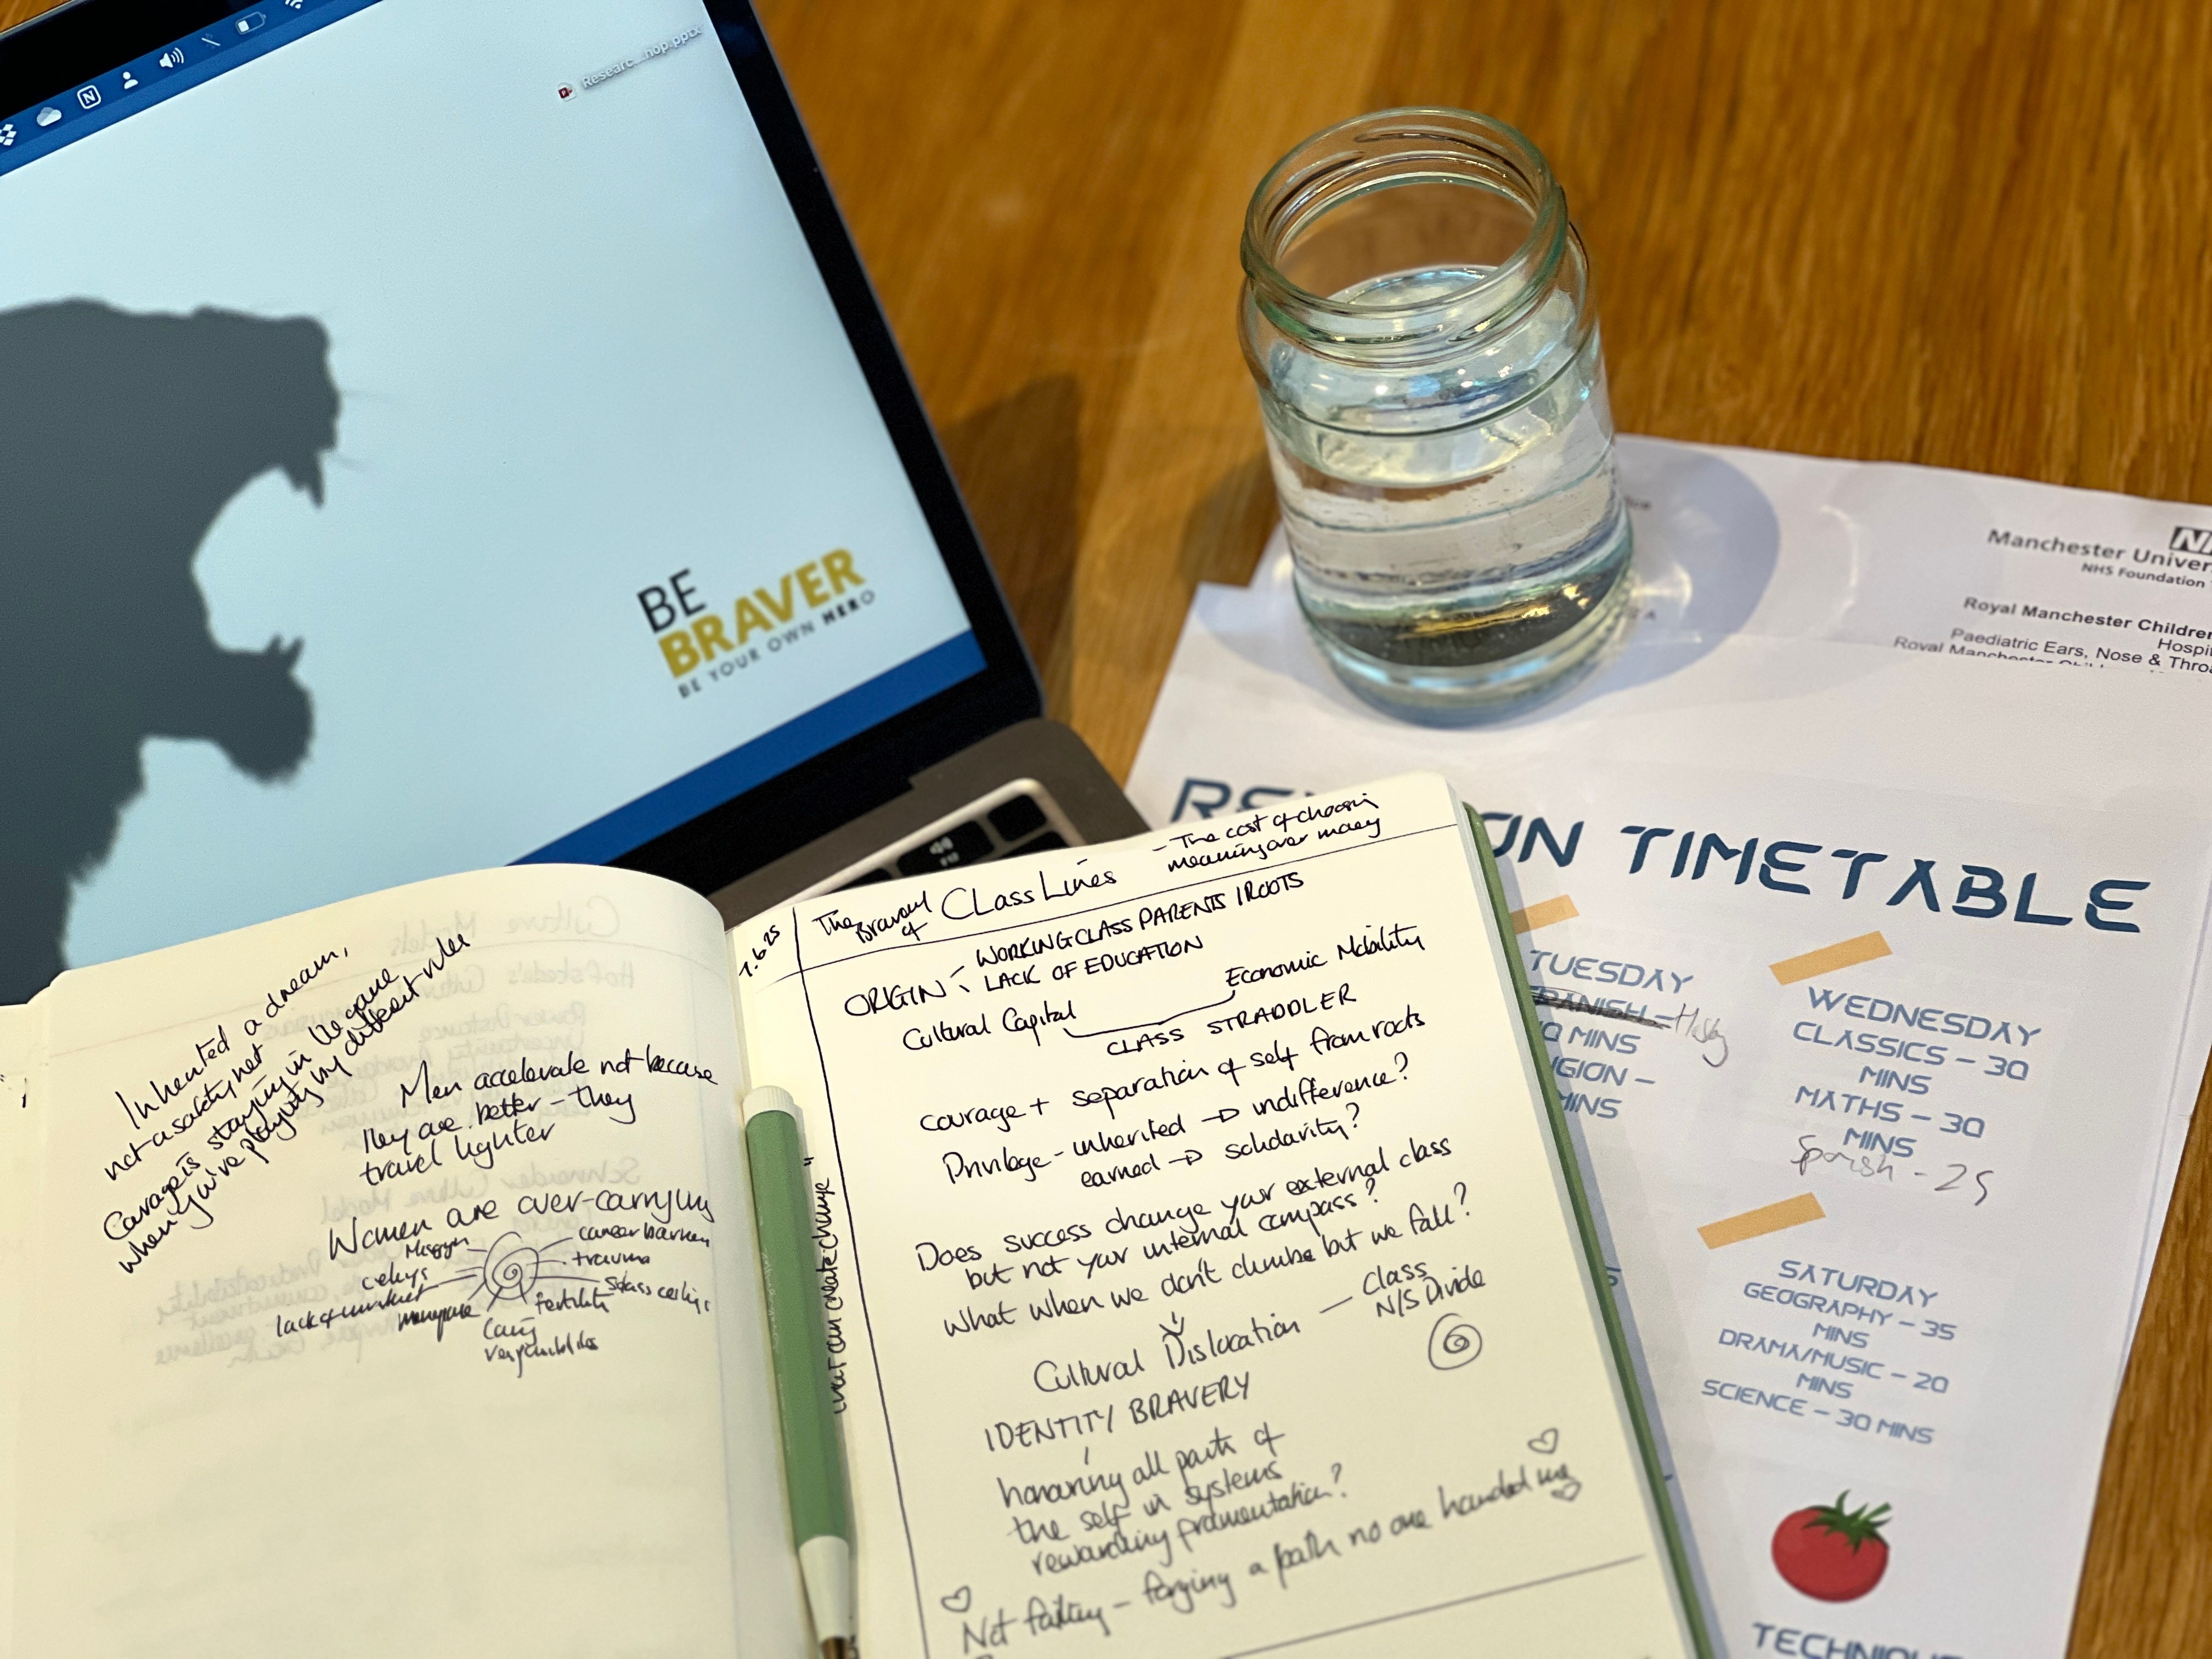 Researc...hop.pptx
BE
BRAVER
BE YOUR OWN HERO
Manchester Univer
NHS Foundation
Royal Manchester Children
Hospit
Paediatric Ears, Nose & Thro
Royal Manchester
ON TIMETABLE
TUESDAY
SPANISH -
MINS
GION -
MINS
WEDNESDAY
CLASSICS - 30
MINS
MATHS - 30
MINS
Spanish - 25
SATURDAY
GEOGRAPHY - 35
MINS
DRAMA/MUSIC - 20
MINS
SCIENCE - 30 MINS
TECHNIQUE
Inherited a dream,
not a safety net
Courage is staying in the game
when you're playing by different rules
Men accelerate not because
they are better - they
travel lighter
Women are over-carrying
career barriers
trauma
fertility
Caring
responsibilities
menopause
lack of
1.6.25
The Bravery of Class Lines
- The cost of choosing
meaning over money
ORIGIN :- WORKING CLASS PARENTS / ROOTS
LACK OF EDUCATION
Cultural Capital
Economic Mobility
CLASS STRADDLER
courage + separation of self from roots
Privilege - inherited → indifference?
earned → solidarity?
Does success change your external class
but not your internal compass?
What when we don't climb but we fall?
Cultural Dislocation - Class
N/S Divide
IDENTITY BRAVERY
honouring all parts of
the self in systems
rewarding fragmentation?
Not failing - forging a path no one handed me
can create change"